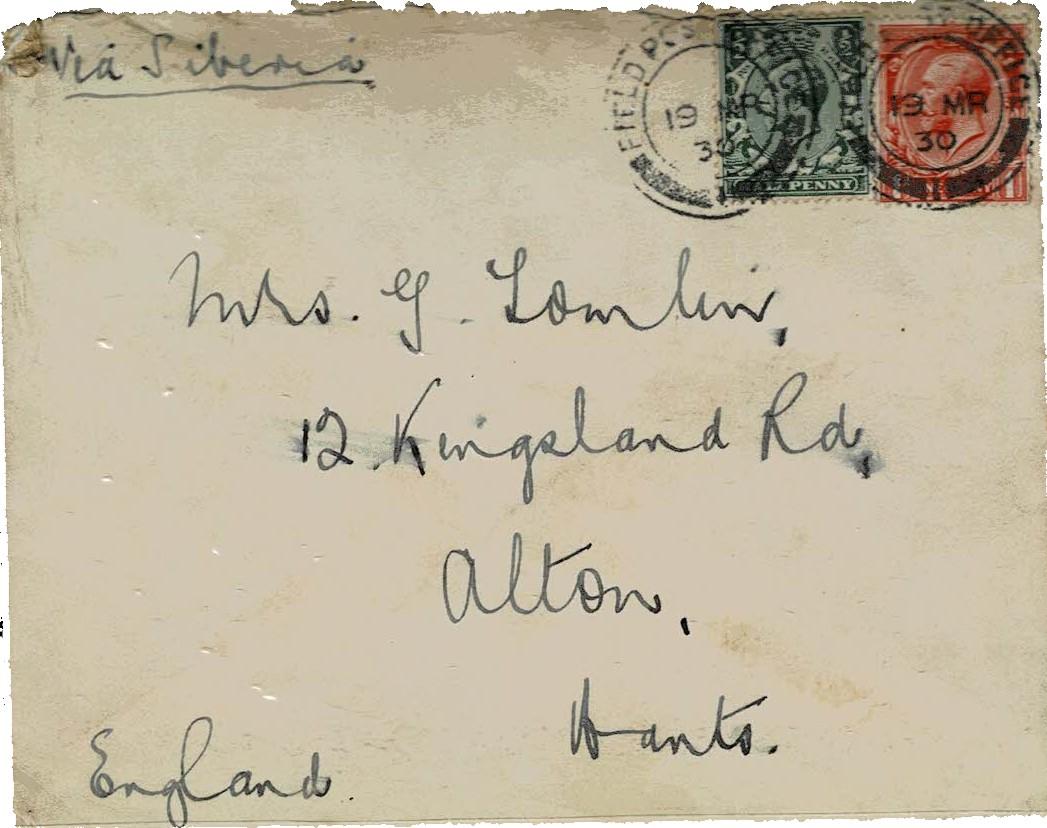 Via Siberia
FIELD POST OFFICE
19 MR
30
HALFPENNY
19 MR
30
Mrs. G. Tomlin,
12. Kingsland Rd,
Alton,
Hants.
England.